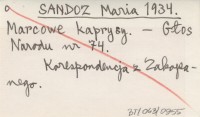 SANDOZ Maria 1934.
Marcowe kaprysy. — Głos
Narodu nr 74.
Korespondencja z Zakopa-
nego.